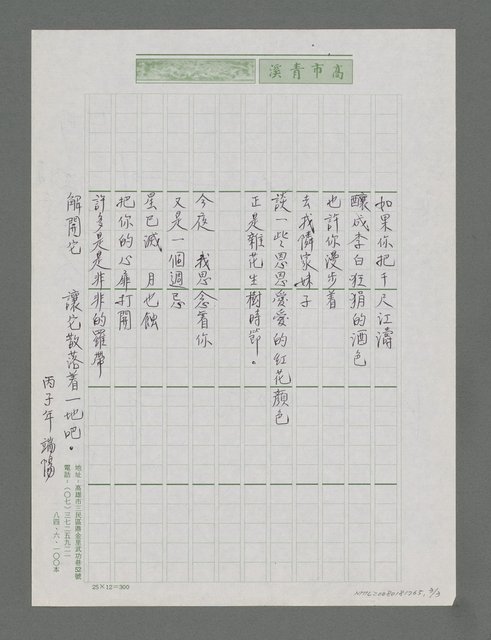 高市青溪
如果你把千尺江濤
釀成李白狂狷的酒色
也許你漫步着
去找隣家妹子
談一些恩恩愛愛的紅花顏色
正是雜花生樹時節。
今夜　我思念着你
又是一個週忌
星已滅　月也蝕
把你的心扉打開
許多是是非非的羅帶
解開它　讓它散落着一地吧。
丙子年端陽
地址：高雄市三民區鼎金里武功巷52號
電話：（〇七）三七二五九二一
八四、六、一〇〇本
25×12=300
NMTL20080181765, 3/3